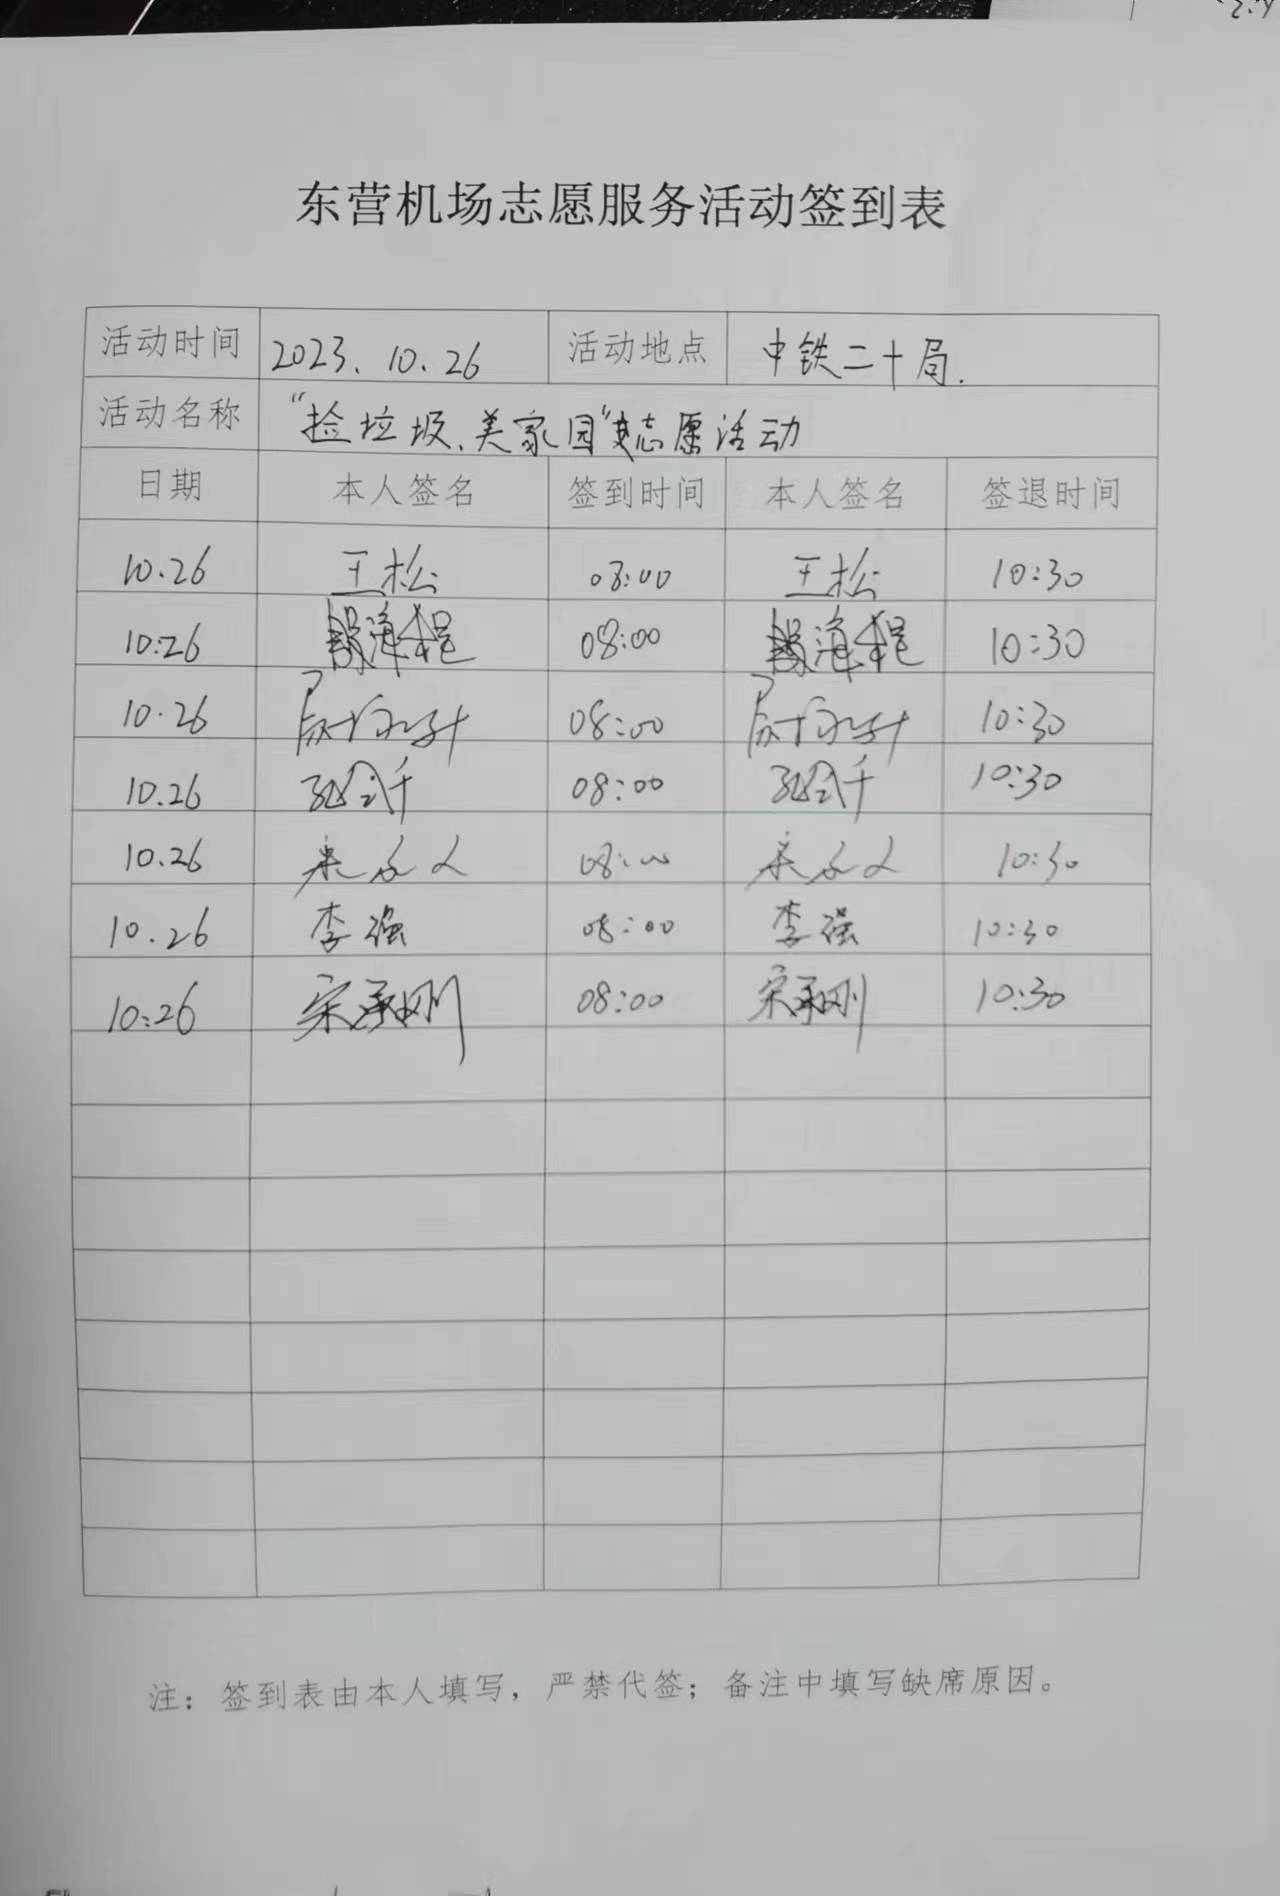 东营机场志愿服务活动签到表
活动时间 2023.10.26 活动地点 中铁二十局.
活动名称 “捡垃圾、美家园”志愿活动
日期 本人签名 签到时间 本人签名 签退时间
10.26 王松 08:00 王松 10:30
10:26 08:00 10:30
10.26 08:00 10:30
10.26 08:00 10:30
10.26 08:00 10:30
10.26 李强 08:00 李强 10:30
10:26 宋承刚 08:00 宋承刚 10:30
注：签到表由本人填写，严禁代签；备注中填写缺席原因。